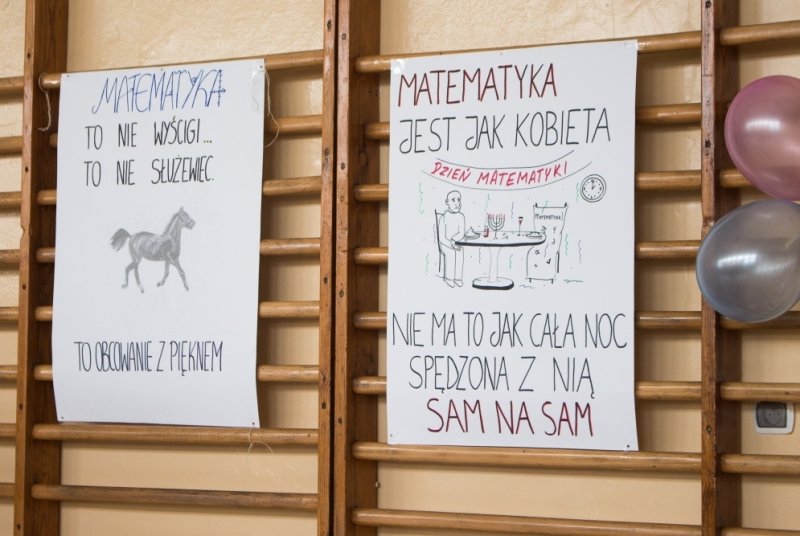 MATEMATYKA
TO NIE WYŚCIGI...
TO NIE SŁUŻEWIEC.
TO OBCOWANIE Z PIĘKNEM
MATEMATYKA
JEST JAK KOBIETA
DZIEŃ MATEMATYKI
MATEMATYKA
NIE MA TO JAK CAŁA NOC
SPĘDZONA Z NIĄ
SAM NA SAM